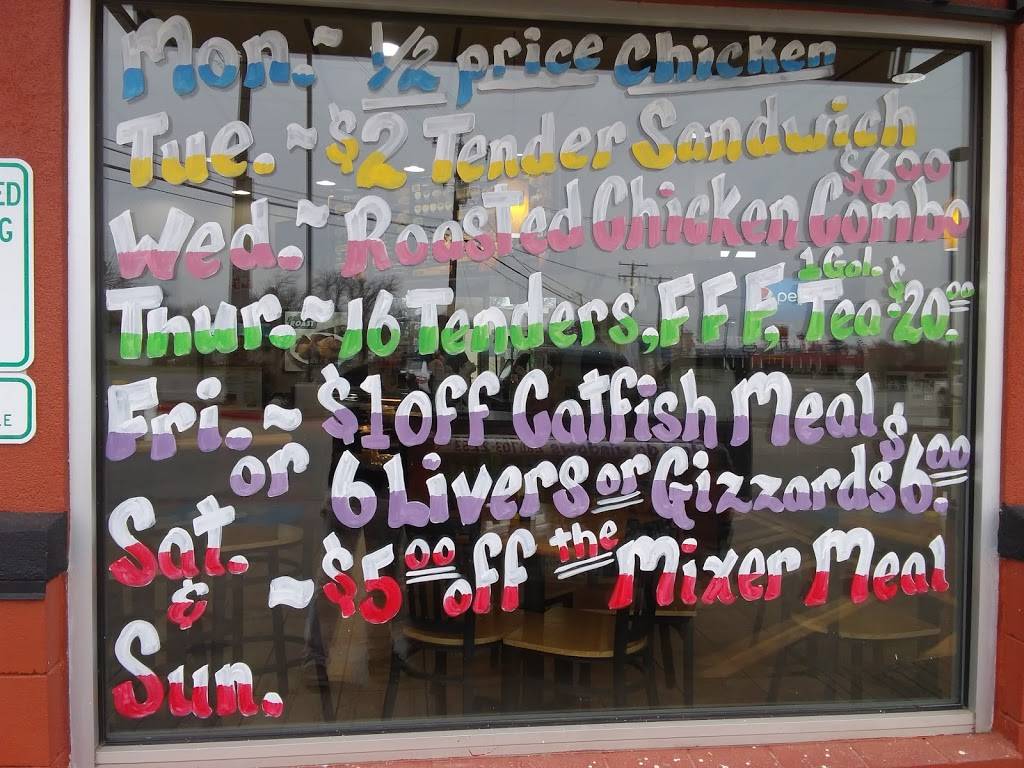 Mon. ~ 1/2 price Chicken
Tue. ~ $2 Tender Sandwich
$6.00
Wed. ~ Roasted Chicken Combo
1 Gal.
Thur. ~ 16 Tenders, FFF, Tea $20.00
Fri. ~ $1 off Catfish Meal
or 6 Livers or Gizzards $6.00
Sat. ~ $5.00 off the Mixer Meal
&
Sun.
ED
G
LE
pe